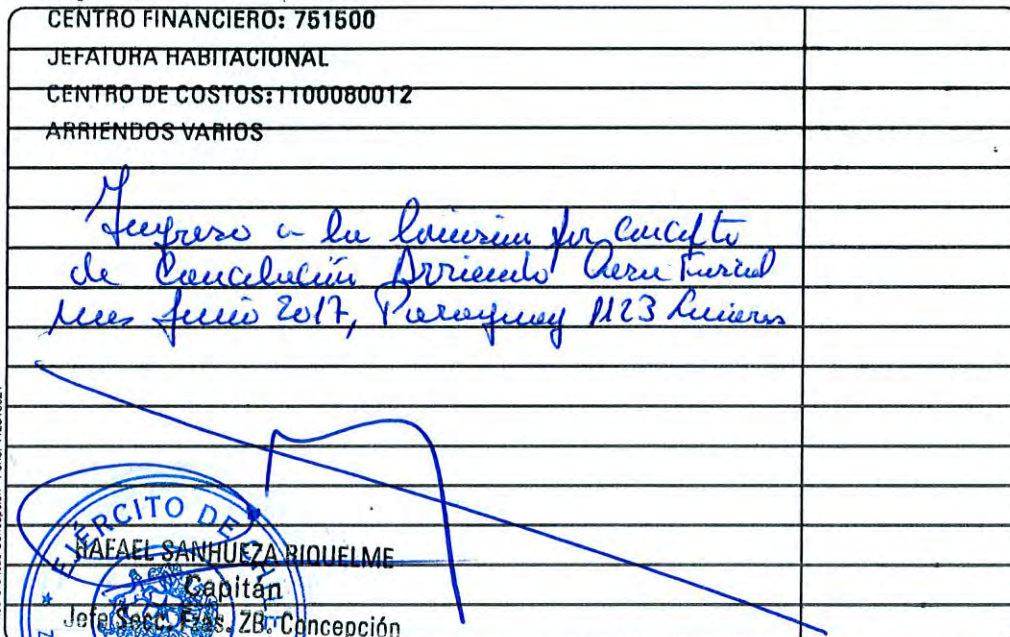 CENTRO FINANCIERO: 751500
JEFATURA HABITACIONAL
CENTRO DE COSTOS: 1100080012
ARRIENDOS VARIOS
Ingreso a la por concepto
de Cancelación Arriendo
mes Junio 2017, Paraguay 1123 Linares
EJÉRCITO DE
RAFAEL SANHUEZA RIQUELME
Capitán
Jefe Secc. Fzas. ZB. Concepción